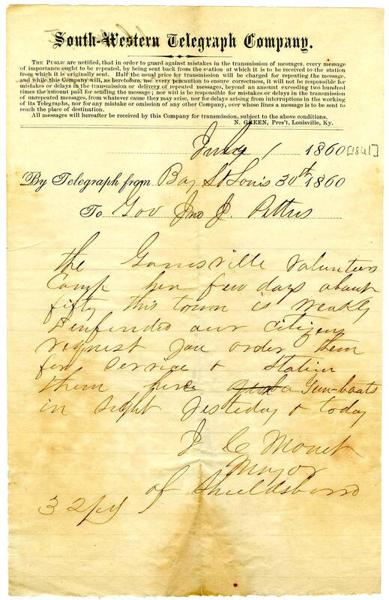 South-Western Telegraph Company.
THE PUBLIC are notified, that in order to guard against mistakes in the transmission of messages, every message
of importance ought to be repeated, by being sent back from the station at which it is to be received to the station
from which it is originally sent. Half the usual price for transmission will be charged for repeating the message,
and while this Company will, as heretofore, use every precaution to ensure correctness, it will not be responsible for
mistakes or delays in the transmission or delivery of repeated messages, beyond an amount exceeding two hundred
times the amount paid for sending the message; nor will it be responsible for mistakes or delays in the transmission
of unrepeated messages, from whatever cause they may arise, nor for delays arising from interruptions in the working
of its Telegraphs, nor for any mistake or omission of any other Company, over whose lines a message is to be sent to
reach the place of destination.
All messages will hereafter be received by this Company for transmission, subject to the above conditions.
N. GREEN, Pres't, Louisville, Ky.
July 1 1860 [1861]
By Telegraph from Bay St Louis 30th 1860
To Gov Jno J. Pettus
the Gainsville Volunteers
Camp her few days about
fifty this town is weakly
our citizens
request you order them
for service & station
them here a Gun-boats
in sight yesteday & today
J C Monet
Mayor
of Shieldsboro
32 py